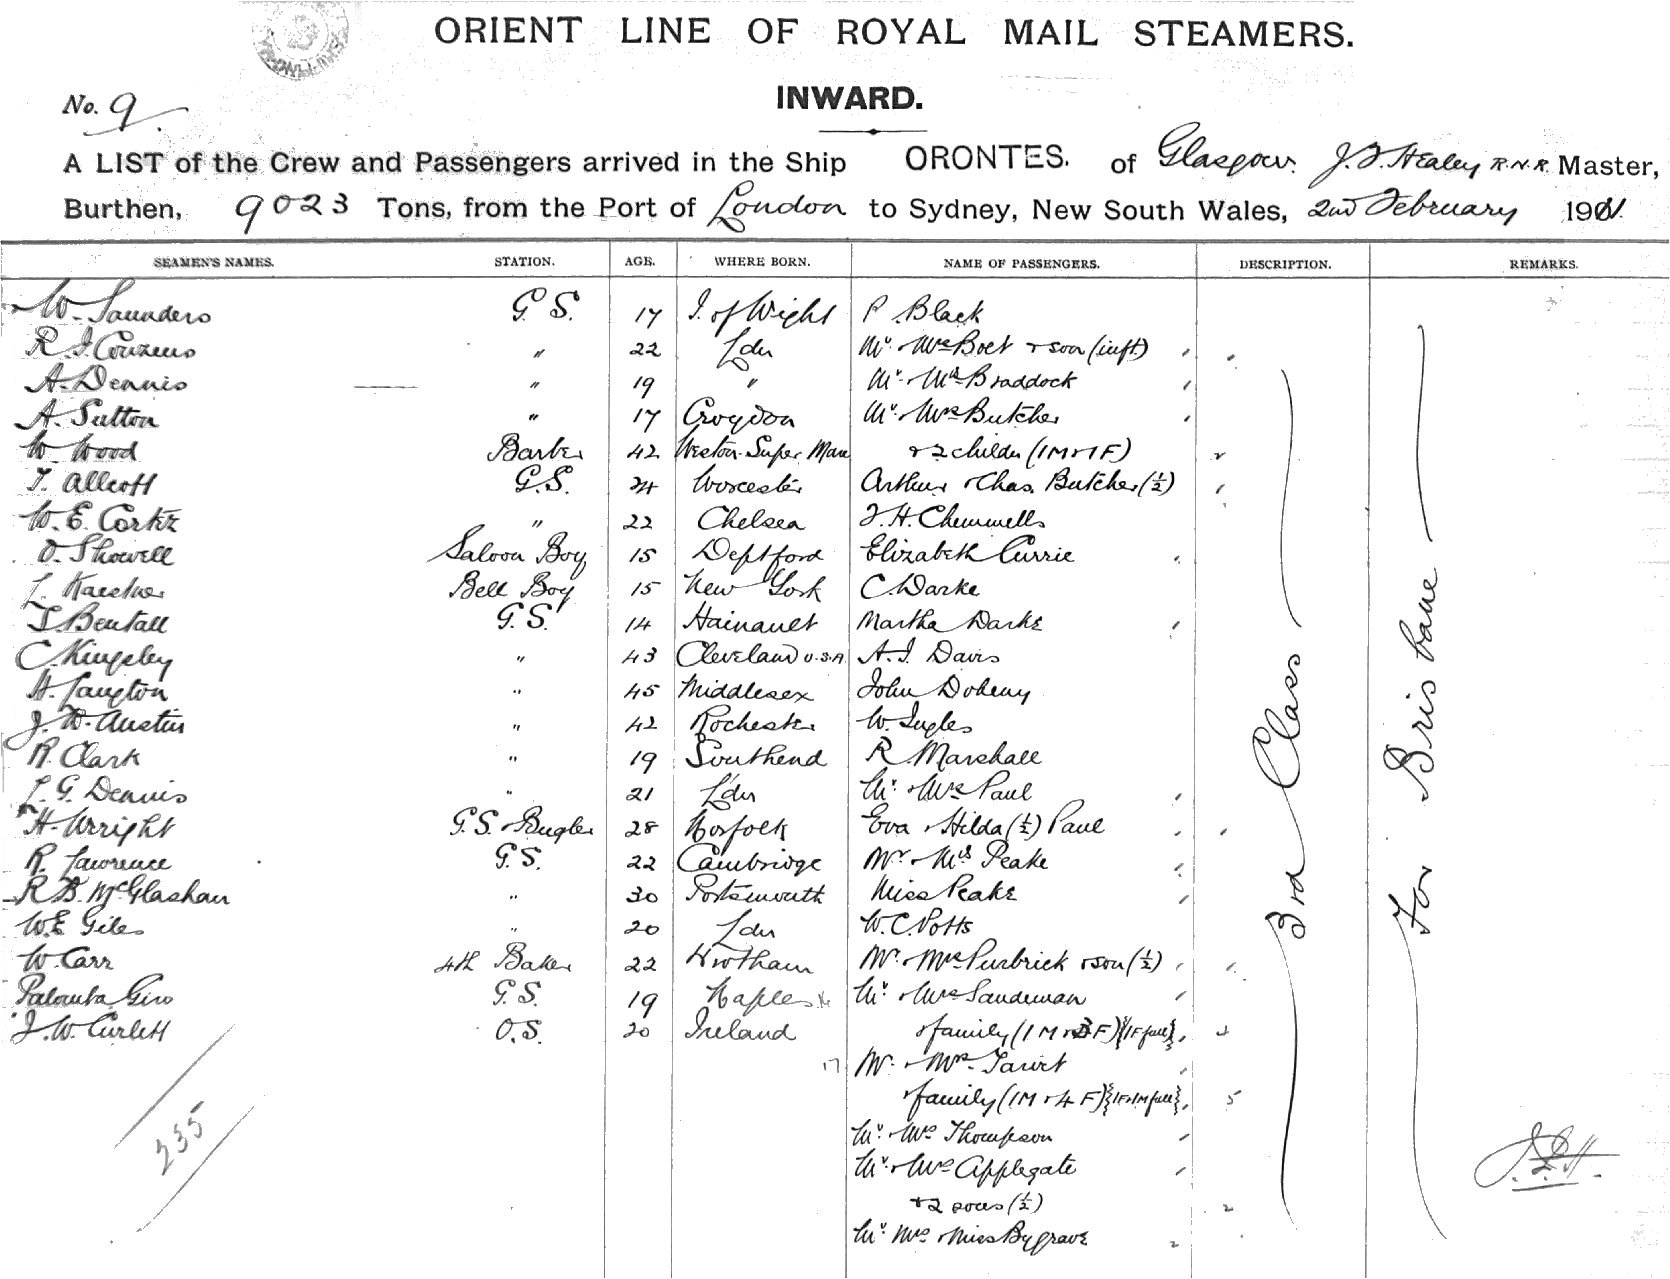 ORIENT LINE OF ROYAL MAIL STEAMERS.
No. 9
INWARD.
A LIST of the Crew and Passengers arrived in the Ship ORONTES. of Glasgow. J.F. Healey R.N.R. Master,
Burthen, 9023 Tons, from the Port of London to Sydney, New South Wales, 2nd February 1911.
SEAMEN'S NAMES. STATION. AGE. WHERE BORN. NAME OF PASSENGERS. DESCRIPTION. REMARKS.
W. Saunders G.S. 17 I. of Wight P. Black
R. J. Couzens " 22 Ldn Mr. & Mrs Boet & son (inft)
A. Dennis " 19 " Mr. & Mrs Braddock
A. Sutton " 17 Croydon Mr. & Mrs Butcher
W. Wood Barber 42 Weston Super Mare & 2 childn (1M & 1F) 2
T. Allcott G.S. 24 Worcester Arthur & Chas. Butcher (½)
W. E. " 22 Chelsea J. H. Chemmells
O. Showell Saloon Boy 15 Deptford Elizabeth Currie
L. Bell Boy 15 New York C. Darke
Bentall G.S. 14 Hainault Martha Darke
C. Kingsley " 43 Cleveland U.S.A. A. J. Davis
H. Langton " 45 Middlesex John Doheny
J. W. Austin " 42 Rochester W. Ingles
R. Clark " 19 Southend R Marshall
L. G. Dennis " 21 Ldn Mr. & Mrs Paul
H. Wright G.S. & Bugler 28 Norfolk Eva & Hilda (½) Paul
R. Lawrence G.S. 22 Cambridge Mr. & Mrs Peake
R. D. McGlashan " 30 Portsmouth Miss Peake
W. E. Giles " 20 Ldn W. C. Potts
W. Carr 4th Baker 22 Wrotham Mr. & Mrs Purbrick & son (½)
Giro G.S. 19 Naples Mr. & Mrs Sandeman
J. W. Curlett O.S. 20 Ireland & family (1M & 3F) {1F full}
17 Mr. & Mrs.
& family (1M & 4F) {1F & 1M full} 5
Mr. & Mrs Thompson
Mr. & Mrs Applegate
& 2 sons (½) 2
Mr. Mrs & Miss Bygrave 2
3rd Class
For Brisbane
235